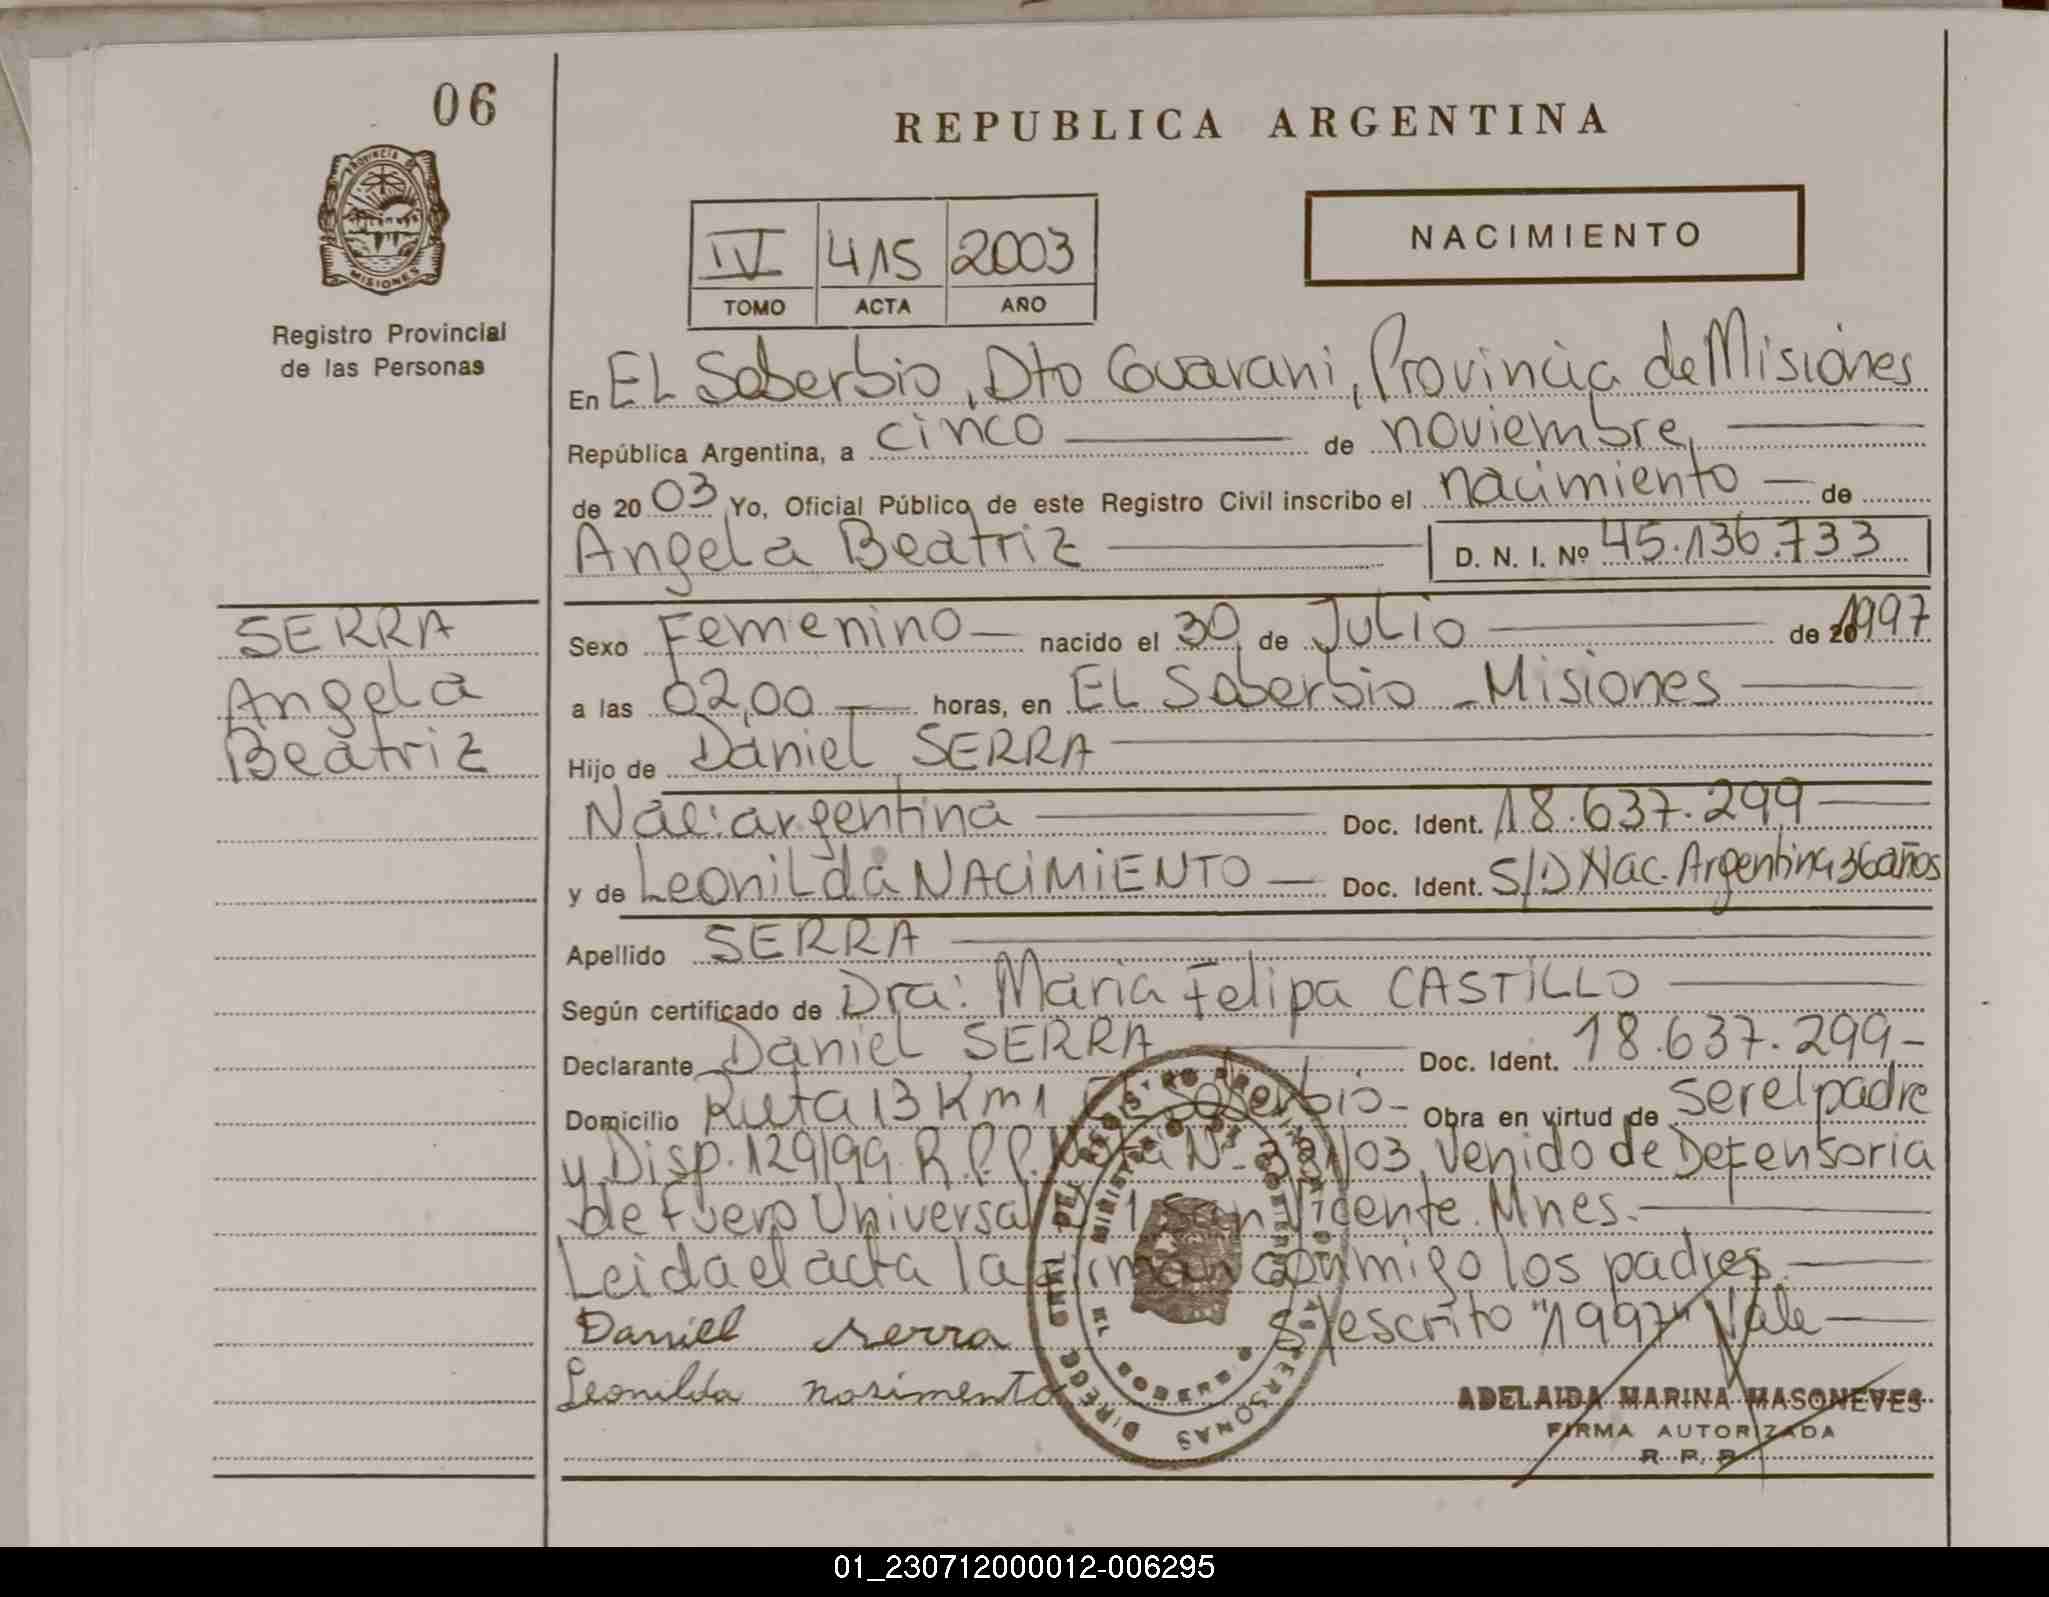 06
REPUBLICA ARGENTINA
PROVINCIA DE
MISIONES
Registro Provincial
de las Personas
IV 415 2003
TOMO ACTA AÑO
NACIMIENTO
En EL Soberbio, Dto Guarani, Provincia de Misiones
República Argentina, a cinco de noviembre,
de 2003 Yo, Oficial Público de este Registro Civil inscribo el nacimiento de
Angela Beatriz D. N. I. Nº 45.136.733
SERRA
Angela
Beatriz
Sexo Femenino nacido el 30 de Julio de 1997
a las 02,00 horas, en EL Soberbio - Misiones
Hijo de Daniel SERRA
Nac: argentina Doc. Ident. 18.637.299
y de Leonilda NACIMIENTO Doc. Ident. S/D Nac. Argentina 36 años
Apellido SERRA
Según certificado de Dra: Maria Felipa CASTILLO
Declarante Daniel SERRA Doc. Ident. 18.637.299-
Domicilio Ruta 13 Km 1 Soberbio- Obra en virtud de ser el padre
y Disp. 129/99. R.P.P. Nota Nº 331/03, Venido de Defensoria
de Fuero Universal Nº 1 San Vicente. Mnes.
Leida el acta la firman conmigo los padres.
S/escrito "1997" Vale
Daniel serra
Leonilda nasimento
ADELAIDA MARINA MASONEVES
FIRMA AUTORIZADA
R. P. P.
01_230712000012-006295